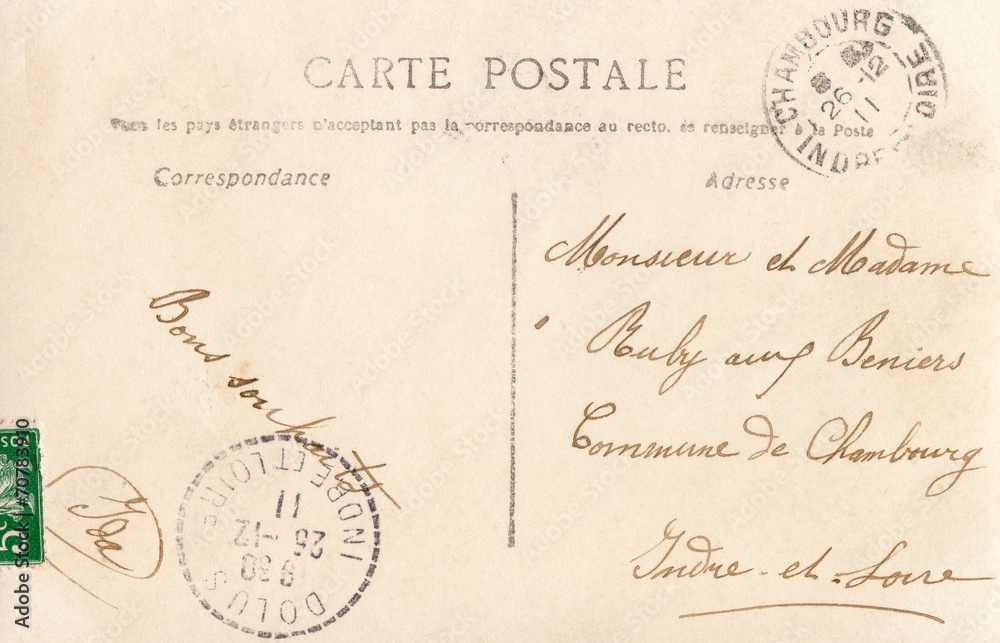 CARTE POSTALE
Tous les pays étrangers n'acceptant pas la correspondance au recto, se renseigner à la Poste
Correspondance
Adresse
CHAMBOURG
INDRE
OIRE
26 -12
11
Monsieur et Madame
Ruby aux Beniers
Commune de Chambourg
Indre-et-Loire
Bons souhaits
Ida
5c
DOLUS
INDRE ET LOIRE
9 30
26 -12
11
Adobe Stock | #70783910